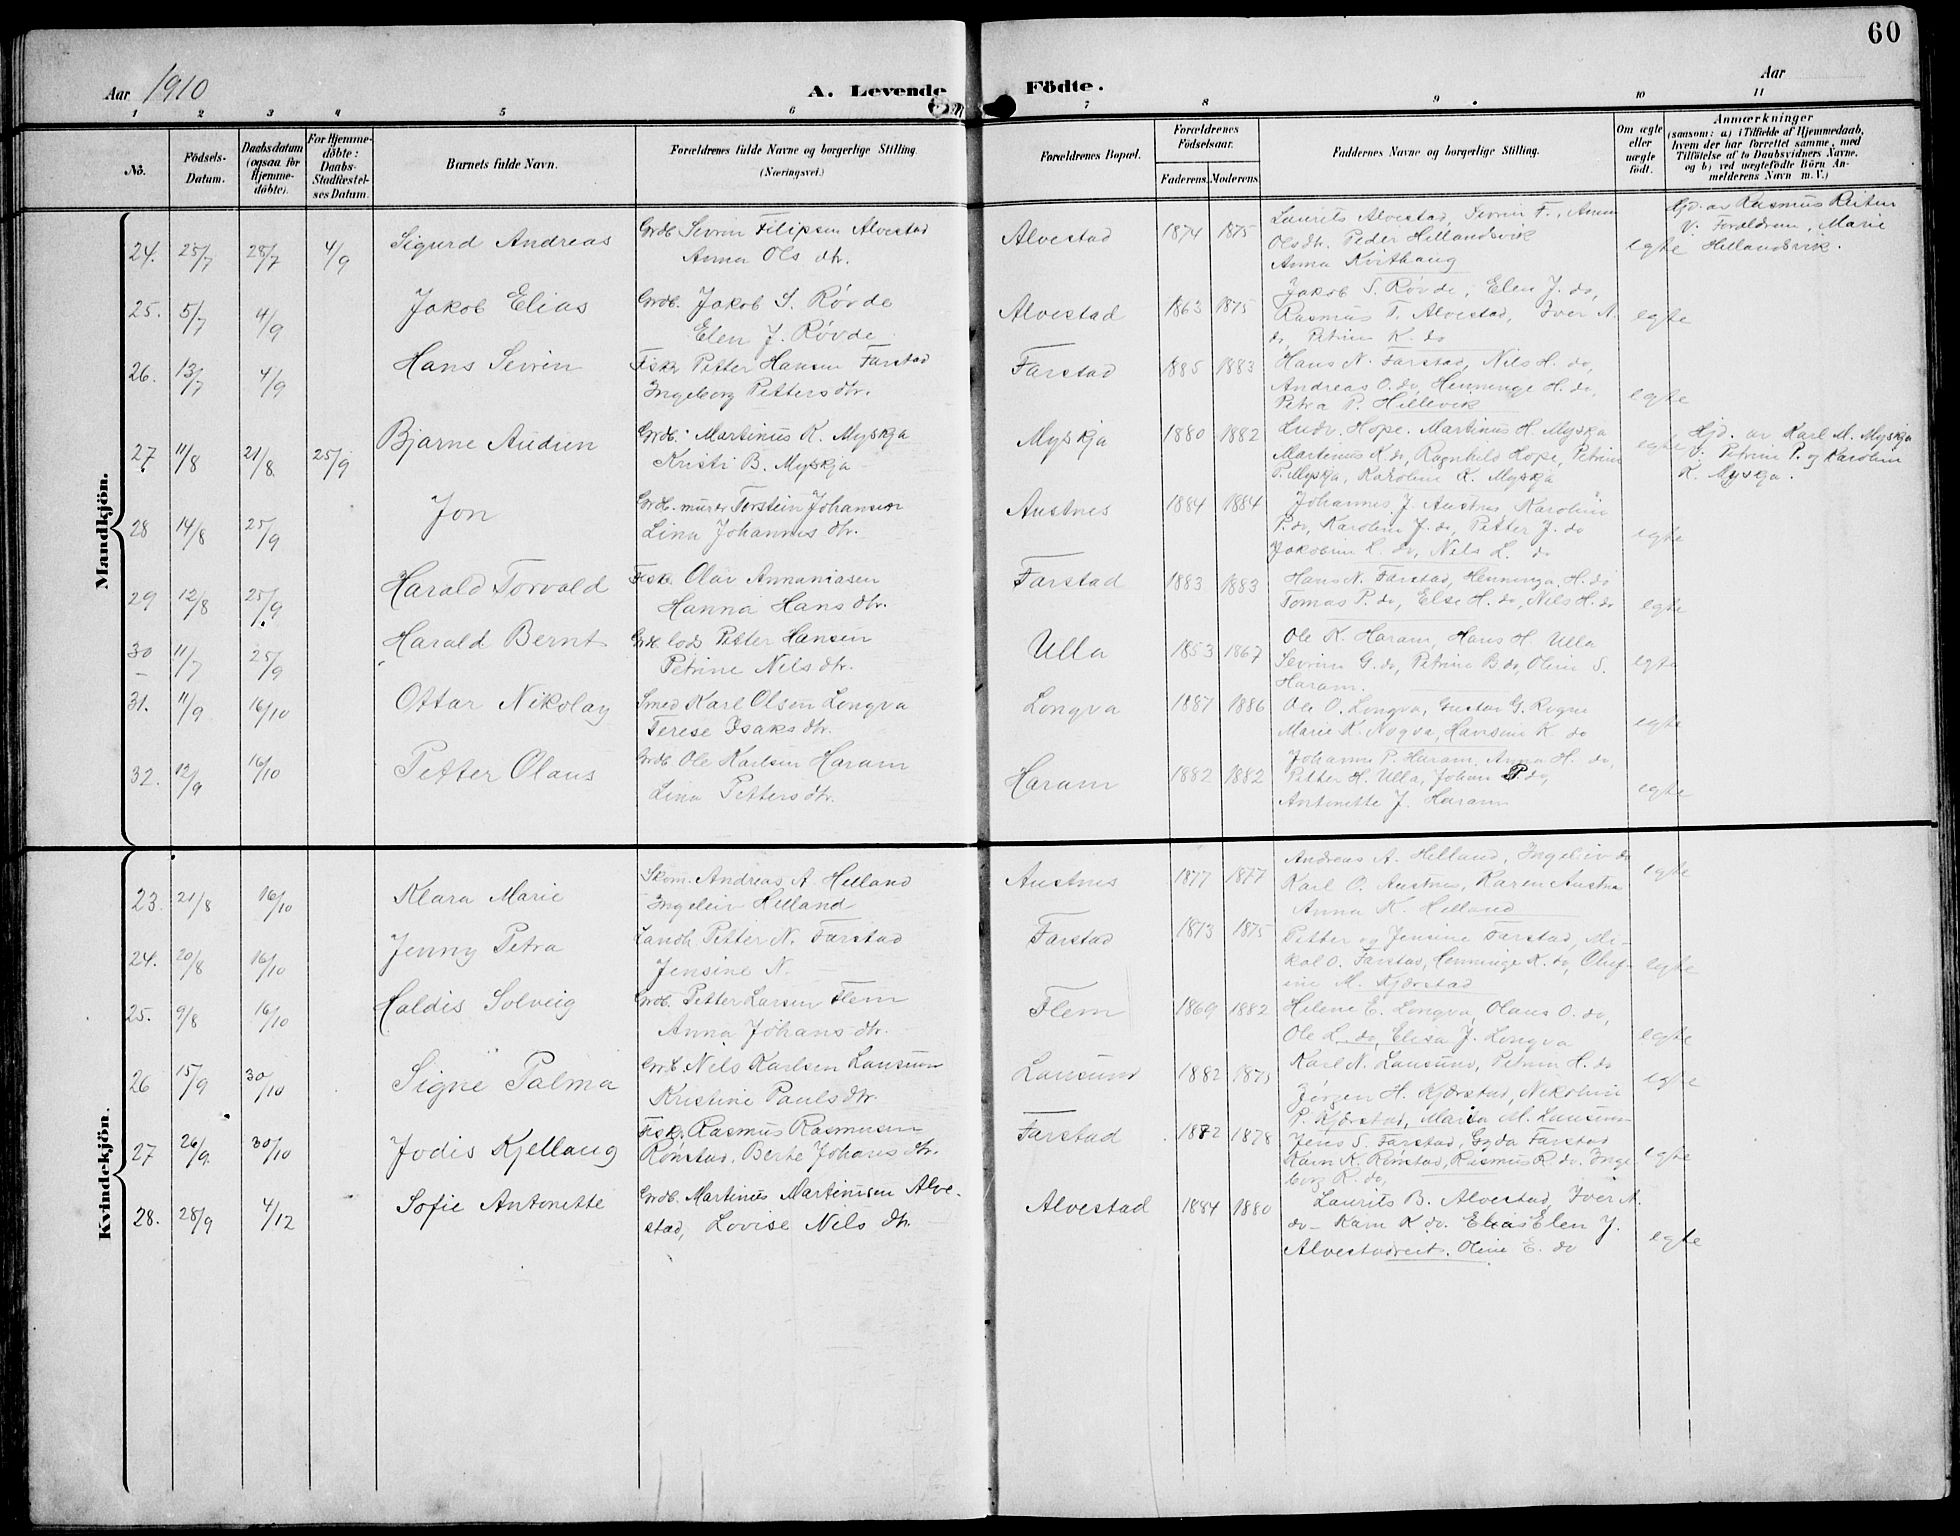 60
Aar 1910 A. Levende Födte. Aar
1 2 3 4 5 6 7 8 9 10 11
No. Födsels-Datum. Daabsdatum (ogsaa for Hjemmedöbte). For Hjemmedöbte: Daabs-Stadfæstelses Datum. Barnets fulde Navn. Forældrenes fulde Navne og borgerlige Stilling. (Næringsvei.) Forældrenes Bopæl. Forældrenes Födselsaar. Faderens. Moderens. Faddernes Navne og borgerlige Stilling. Om ægte eller uægte födt. Anmærkninger (saasom: a) i Tilfælde af Hjemmedaab, hvem der har forrettet samme, med Tilföielse af to Daabsvidners Navne, og b) ved uægtefödte Börn Anmelderens Navn m. V.)
Mandkjön.
24. 25/7 28/7 4/9 Sigurd Andreas Grdb. Sevrin Filipsen Alvestad Alvestad 1874 1875 Laurits Alvestad, Sevrin F., Anna
Anna Olsdtr. Olsdtr. Peder Hellandsvik egte Hjd. av Rasmus
Anna Kvithaug V. Foreldrene, Marie Hellandsvik.
25. 5/7 4/9 Jakob Elias Grdb. Jakob S. Røvde Alvestad 1863 1875 Jakob S. Røvde, Elen J. do,
Elen J. Røvde Rasmus T. Alvestad, Iver N. egte
do, Petrine K. do
26. 13/7 4/9 Hans Sevrin Fisk. Petter Hansen Farstad Farstad 1885 1883 Hans N. Farstad, Nils H. do,
Ingeborg Pettersdtr. Andreas O. do, Henninge H. do, egte
Petra P. Hellevik
27. 11/8 21/8 25/9 Bjarne Audien Grdb. Martinus K. Myskja Myskja 1880 1882 Ludv. Hope. Martinus H. Myskja
Kristi B. Myskja Martinus K do, Ragnhild Hope, Petrine egte Hjd. av Karl M. Myskja
P. Myskja, Karoline K. Myskja V. Petrine P. og Karoline K. Myskja.
28 14/8 25/9 Jon Grdb. murer Torstein Johansen Austnes 1884 1884 Johannes J. Austnes, Karoline
Lina Johannesdtr. P. do, Karoline J. do, Petter J. do egte
Jakobine L. do, Nils L. do
29 12/8 25/9 Harald Torvald Fisk. Olav Annaniasen Farstad 1883 1883 Hans N. Farstad, Henninga H. do
Hanna Hansdtr. Tomas P. do, Else H. do, Nils H. do egte
30 11/7 25/9 Harald Bernt Grdb. lods Petter Hansen Ulla 1853 1867 Ole K. Haram, Hans H. Ulla
Petrine Nilsdtr. Sevrine G. do, Petrine B. do, Oline S. egte
Haram.
31. 11/9 16/10 Ottar Nikolay Smed Karl Olsen Longva Longva 1887 1886 Ole O. Longva, Gustav G. Rogne
Terese Isaksdtr. Marie K. Nogva, Hansine K. do egte
32. 12/9 16/10 Petter Olaus Grdb. Ole Karlsen Haram Haram 1882 1882 Johannes P. Haram, Anna H. do,
Lina Pettersdtr. Petter H. Ulla, Johan P. do, egte
Antonette J. Haram
Kvindekjön.
23. 21/8 16/10 Klara Marie Skom. Andreas A. Helland Austnes 1877 1877 Andreas A. Helland, Ingeleiv do egte
Ingeleiv Helland Karl O. Austnes, Karen Austnes
Anna K. Helland
24. 20/8 16/10 Jenny Petra Landh. Petter N. Farstad Farstad 1873 1875 Petter og Jensine Farstad, Mi-
Jensine N. — kal O. Farstad, Henninge K. do, Oluf- egte
ine M. Kjørstad
25. 9/8 16/10 Haldis Solveig Grdb. Petter Larsen Flem Flem 1869 1882 Helene E. Longva, Olaus O. do,
Anna Johansdtr. Ole L. do, Elisa J. Longva egte
26 15/9 30/10 Signe Palma Grdb. Nils Karlsen Lausund Lausund 1882 1875 Karl N. Lausund, Petrine H. do
Kristine Paulsdtr. Jørgen H. Kjørstad, Nikoline egte
P. Kjørstad, Maria M. Lausund
27 26/9 30/10 Jodis Kjellaug Fisk. Rasmus Rasmusen Farstad 1872 1878 Jens S. Farstad, Gyda Farstad
Rønstad, Berte Johansdtr. Karn K. Rønstad, Rasmus R. do. Inge- egte
borg R. do,
28. 28/9 4/12 Sofie Antonette Grdb. Martinus Martinusen Alve- Alvestad 1884 1880 Laurits B. Alvestad, Iver N.
stad, Lovise Nilsdtr. do — Karn K do. Elias Elen J.
Alvestadreit. Oline E. do egte